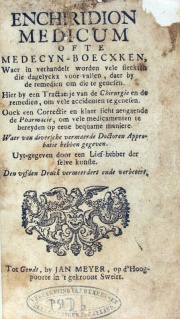 ENCHIRIDION
MEDICUM
OFTE
MEDECYN-BOECXKEN,
Waer in verhandelt worden vele sieckten
die dagelyckx voor vallen, daer by
de remedien om die te genesen.
Hier by een Tractaetje van de Chirurgie en de
remedien, om vele accidenten te genesen.
Oock een Correctie en klaer licht aengaende
de Pharmacie, om vele medicamenten te
bereyden op eene bequame maniere.
Waer van diversche vermaerde Doctoren Appro-
batie hebben gegeven.
Uyt-gegeven door een Lief-hebber der
selve konste.
Den vyfden Druck vermeerdert ende verbetert,
Tot Gendt, by JAN MEYER, op d'Hoog-
poorte in 't gekroont Sweirt.